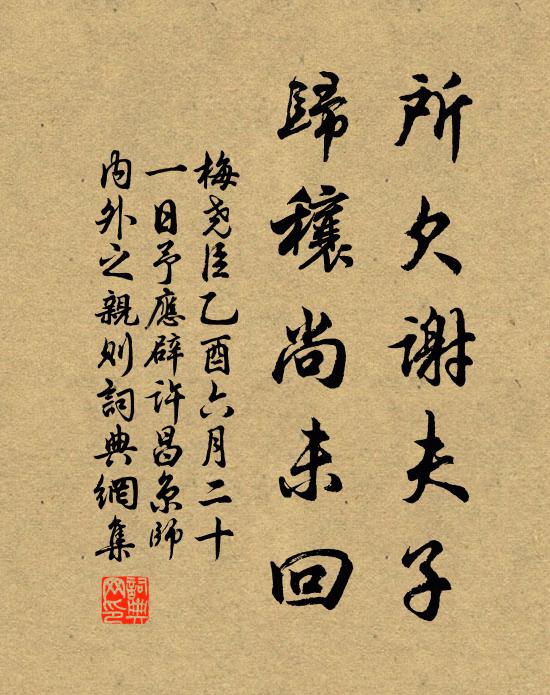 所欠謝夫子
歸穰尚未回
梅堯臣乙酉六月二十
一日予應辟許昌京師
內外之親則詞典網集
詞典
网印